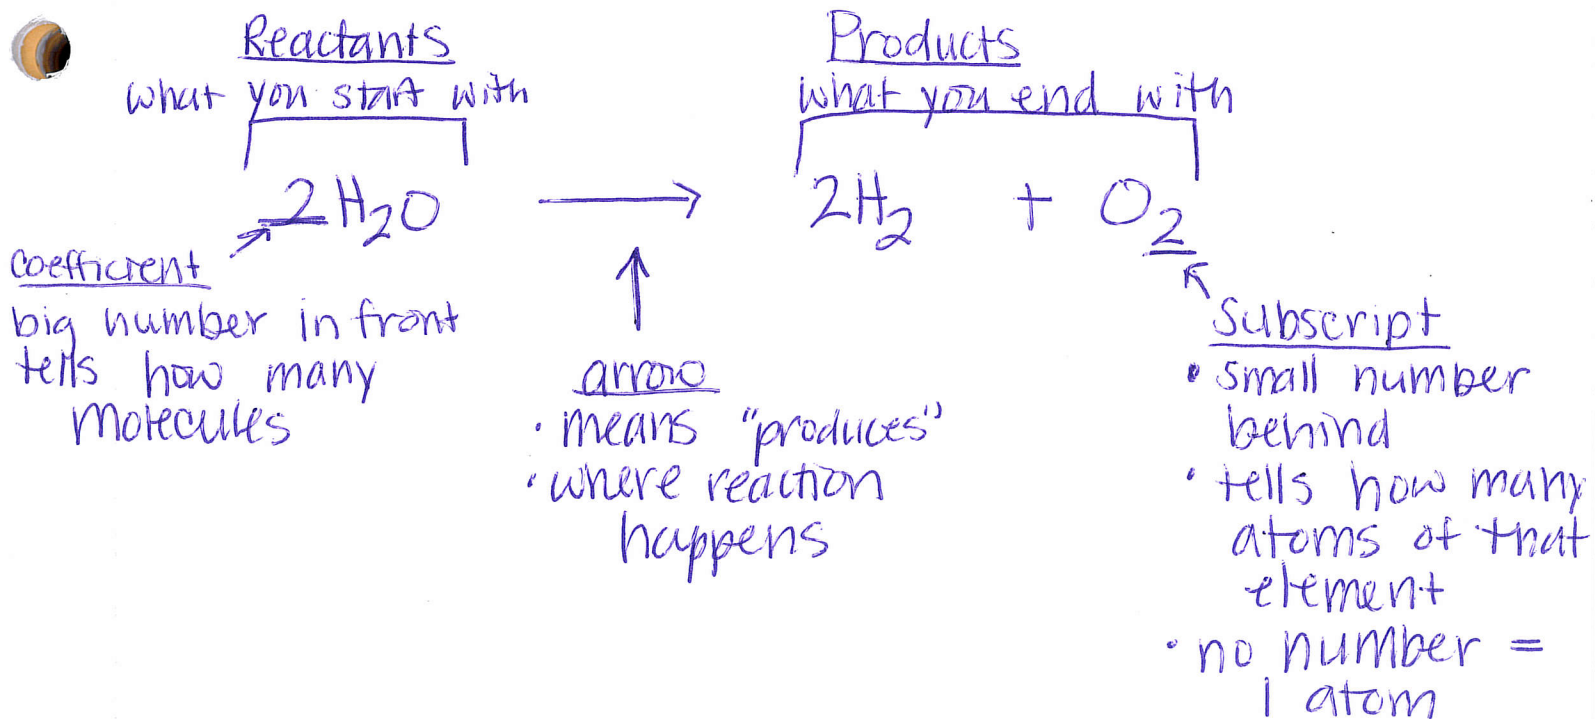 Reactants
what you start with
Products
what you end with
2H₂O → 2H₂ + O₂
coefficient
big number in front
tells how many
molecules
arrow
• means "produces"
• where reaction
happens
Subscript
• small number
behind
• tells how many
atoms of that
element
• no number =
1 atom